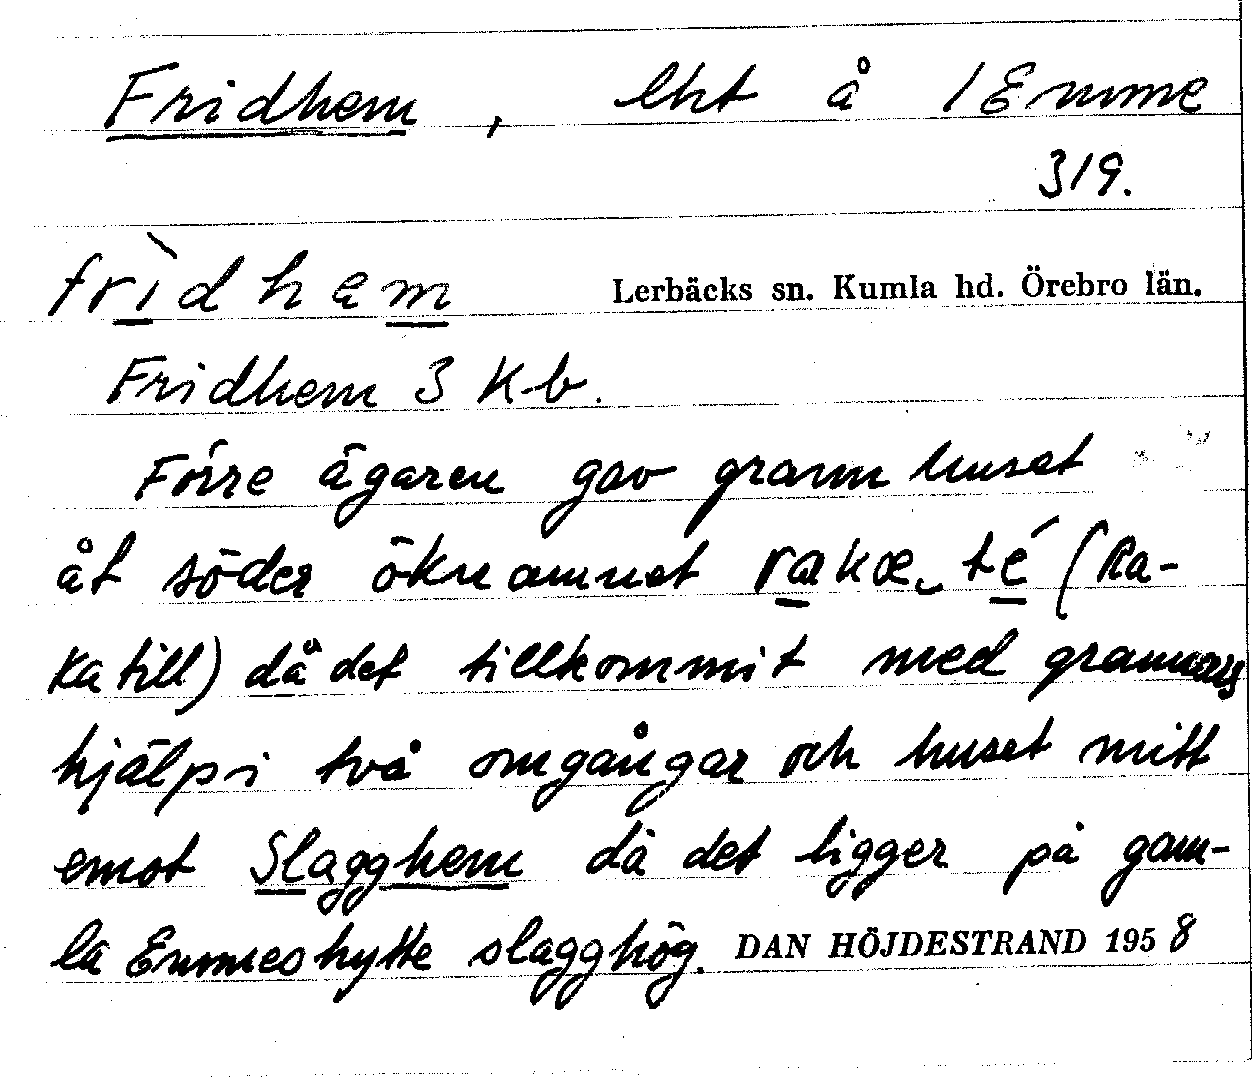 Fridhem, lht å 1 Emme
319.
frìdhem
Lerbäcks sn. Kumla hd. Örebro län.
Fridhem 3 Kb.
Förre ägaren gav grannhuset
åt söder öknamnet rakæ té (Ra-
ka till) då det tillkommit med grannars
hjälp i två omgångar och huset mitt
emot Slagghem då det ligger på gam-
la Emmeshytte slagghög.
DAN HÖJDESTRAND 1958